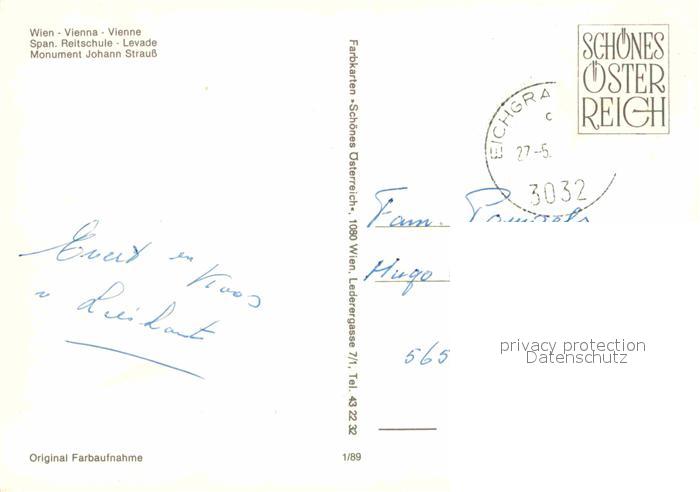 Wien - Vienna - Vienne
Span. Reitschule - Levade
Monument Johann Strauß
Farbkarten »Schönes Österreich«, 1080 Wien, Lederergasse 7/1, Tel. 43 22 32
SCHÖNES
ÖSTER
REICH
EICHGRA
c
27-5.
3032
Evert en Koos
Fam.
Hugo
565
privacy protection
Datenschutz
Original Farbaufnahme
1/89